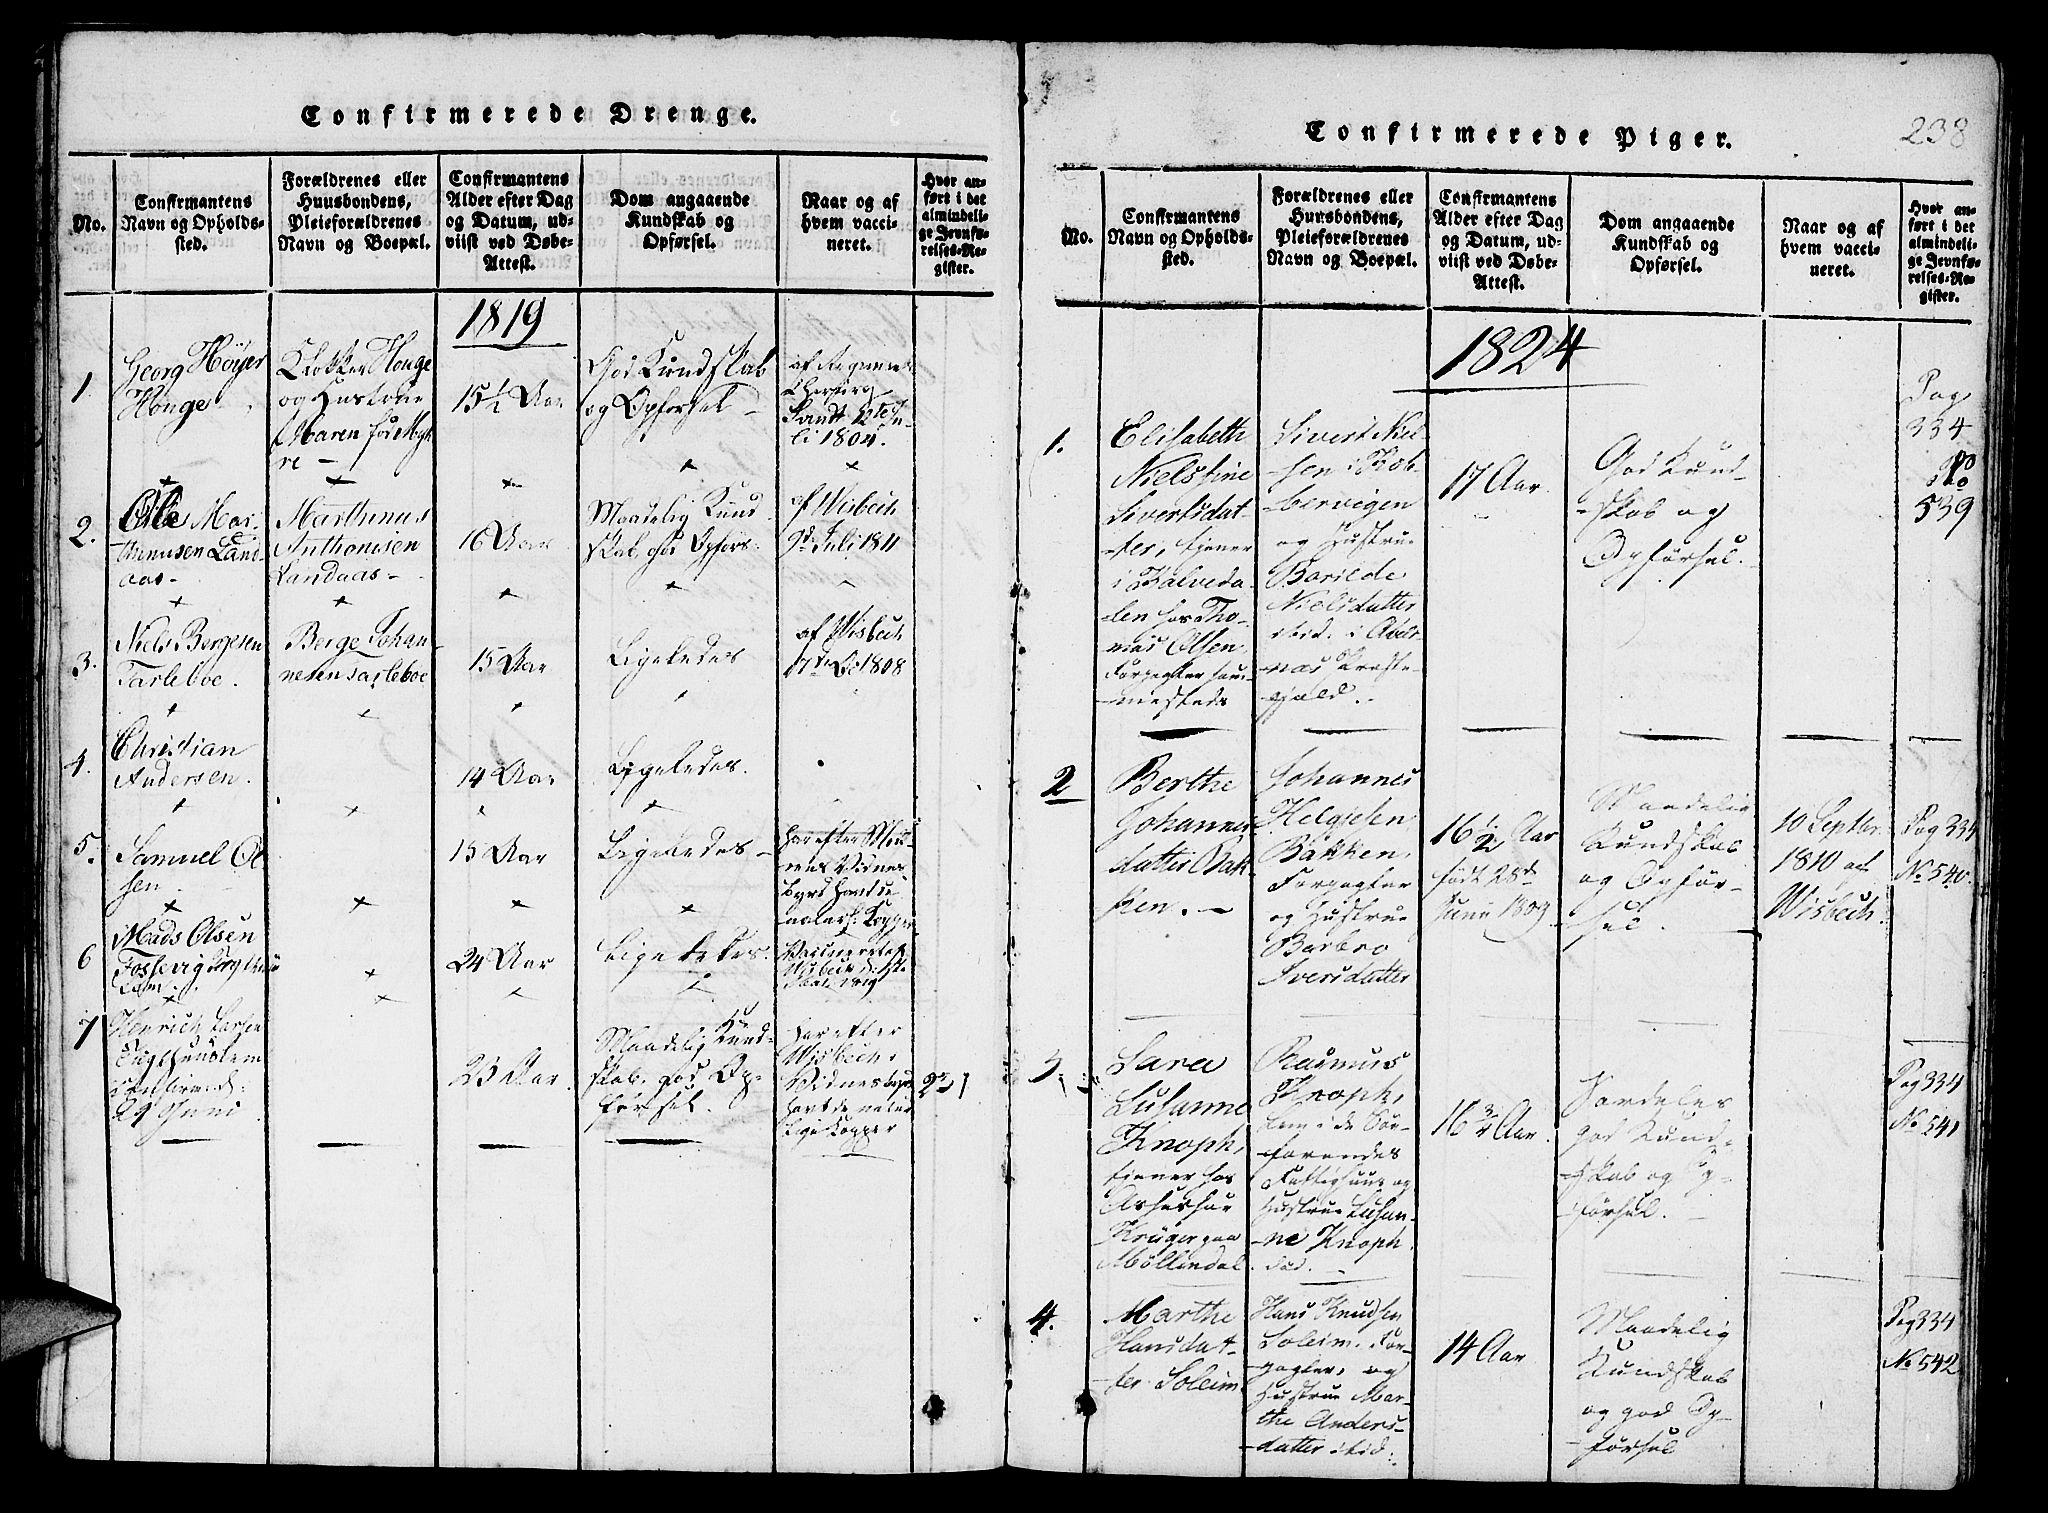 Confirmerede Drenge.
No.
Confirmantens
Navn og Opholds-
sted.
Forældrenes eller
Huusbondens,
Pleieforældrenes
Navn og Boepæl.
Confirmantens
Alder efter Dag
og Datum, ud-
viist ved Døbe-
Attest.
Dom angaaende
Kundskab og
Opførsel.
Naar og af
hvem vacci-
neret.
Hvor an-
ført i det
almindeli-
ge Jevnfø-
relses-Re-
gister.
1819
1.
Georg Höyer
Houge
Klokker Houge
og Hustrue
Maren fød Myh
re
15½ Aar
God Kundskab
og Opførsel
li 1804.
2.
Ole Mar-
thinusen Land-
aas
Marthinus
Anthonisen
Landaas
16 Aar
Maadelig Kund
skab, god Opførs.
af Wisbech
9de Juli 1811
3.
Niels Bergesen
Tarleboe.
Berge Johan-
nesen Tarleboe
15 Aar
Ligeledes
af Wisbech
1808
4.
Christian
Andersen.
14 Aar
Ligeledes.
5.
Samuel Ol
sen
15 Aar
Ligeledes
har efter
Vidnes
byrd havt de
6
Mads Olsen
Fossevig
Lem.
24 Aar
Ligeledes.
Wisbech
7
Henrich Larsen
29 Juni
23 Aar.
Maadelig Kund-
skab. god Op-
førsel.
har efter
Wisbechs
Vidnesbyrd
havt de natur
lige Kopper
Confirmerede Piger.
238
No.
Confirmantens
Navn og Opholds-
sted.
Forældrenes eller
Huusbondens,
Pleieforældrenes
Navn og Boepæl.
Confirmantens
Alder efter Dag
og Datum, ud-
viist ved Døbe-
Attest.
Dom angaaende
Kundskab og
Opførsel.
Naar og af
hvem vacci-
neret.
Hvor an-
ført i det
almindeli-
ge Jevnfø-
relses-Re-
gister.
1824
1.
Elisabeth
Nielstine
Sivertsdat-
ter, tjener
i Kalveda-
len hos Tho-
mas Olsen
Forpagter sam-
mesteds
Sivert Niel-
sen i Kob-
bervigen
og Hustrue
Barilde
Nielsdatter
ibid. i Aver-
næs Præste-
gjæld.
17 Aar
God Kund-
skab og
Opførsel.
Pag
334
No
539
2
Berthe
Johannes-
datter Bak-
ken.
Johannes
Helgesen
Bakken,
Forpagter
og Hustrue
Barbro
Iversdatter
16½ Aar
født 28de
Juny 1807
Maadelig
Kundskab
og Opfør-
sel.
10 Septbr.
1810 af
Wisbech.
Pag 334
No 540.
3.
Sara
Susanne
Knoph,
tjener hos
Krüger paa
Møllendal.
Rasmus
Knoph,
Lem i de Sø-
farendes
Fattighuus og
Hustrue Susan-
ne Knoph.
død.
16¾ Aar.
Særdeles
god Kund-
skab og Op-
førsel.
Pag 334
No 541
4.
Marthe
Hansdat-
ter Soleim
Hans Knudsen
Soleim. For-
pagter, og
Hustrue Mar-
the Anders-
datter ibid.
14 Aar
Maadelig
Kundskab
og god Op-
førsel
Pag 334
No 542